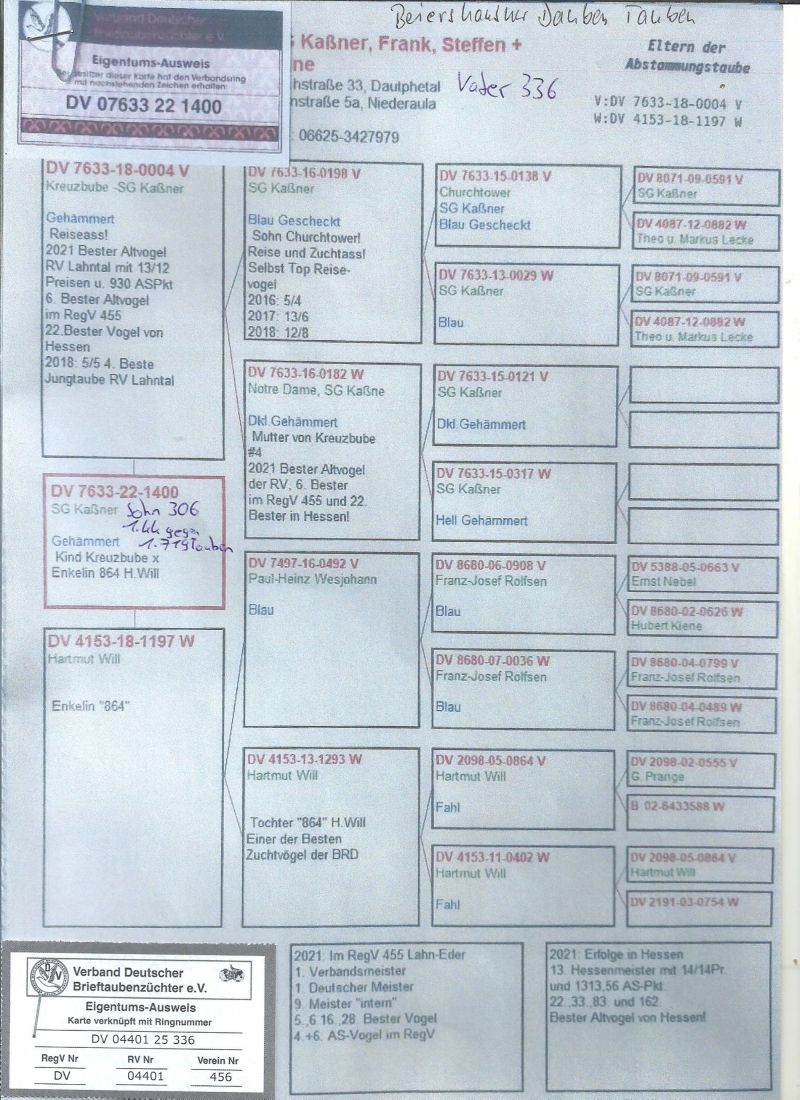 Beiershausner Dauben Tauben
Verband Deutscher
Brieftaubenzüchter e.V.
Eigentums-Ausweis
Besitzer dieser Karte hat den Verbandsring
mit nachstehenden Zeichen erhalten:
DV 07633 22 1400
Kaßner, Frank, Steffen +
ne
hstraße 33, Dautphetal
nstraße 5a, Niederaula
06625-3427979
Vater 336
Eltern der
Abstammungstaube
V:DV 7633-18-0004 V
W:DV 4153-18-1197 W
DV 7633-18-0004 V
Kreuzbube -SG Kaßner
Gehämmert
Reiseass!
2021 Bester Altvogel
RV Lahntal mit 13/12
Preisen u. 930 ASPkt
6. Bester Altvogel
im RegV 455
22.Bester Vogel von
Hessen
2018: 5/5 4. Beste
Jungtaube RV Lahntal
DV 7633-22-1400
SG Kaßner
Sohn 306
1.KK gegen
1.719 Tauben
Gehämmert
Kind Kreuzbube x
Enkelin 864 H.Will
DV 4153-18-1197 W
Hartmut Will
Enkelin "864"
DV 7633-16-0198 V
SG Kaßner
Blau Gescheckt
Sohn Churchtower!
Reise und Zuchtass!
Selbst Top Reise-
vogel
2016: 5/4
2017: 13/6
2018: 12/8
DV 7633-16-0182 W
Notre Dame, SG Kaßne
Dkl.Gehämmert
Mutter von Kreuzbube
#4
2021 Bester Altvogel
der RV, 6. Bester
im RegV 455 und 22.
Bester in Hessen!
DV 7497-16-0492 V
Paul-Heinz Wesjohann
Blau
DV 4153-13-1293 W
Hartmut Will
Tochter "864" H.Will
Einer der Besten
Zuchtvögel der BRD
DV 7633-15-0138 V
Churchtower
SG Kaßner
Blau Gescheckt
DV 7633-13-0029 W
SG Kaßner
Blau
DV 7633-15-0121 V
SG Kaßner
Dkl.Gehämmert
DV 7633-15-0317 W
SG Kaßner
Hell Gehämmert
DV 8680-06-0908 V
Franz-Josef Rolfsen
Blau
DV 8680-07-0036 W
Franz-Josef Rolfsen
Blau
DV 2098-05-0864 V
Hartmut Will
Fahl
DV 4153-11-0402 W
Hartmut Will
Fahl
DV 8071-09-0591 V
SG Kaßner
DV 4087-12-0882 W
Theo u. Markus Lecke
DV 8071-09-0591 V
SG Kaßner
DV 4087-12-0882 W
Theo u. Markus Lecke
DV 5388-05-0663 V
Ernst Nebel
DV 8680-02-0626 W
Hubert Kiene
DV 8680-04-0799 V
Franz-Josef Rolfsen
DV 8680-04-0489 W
Franz-Josef Rolfsen
DV 2098-02-0555 V
G. Prange
B 02-6433588 W
DV 2098-05-0864 V
Hartmut Will
DV 2191-03-0754 W
Verband Deutscher
Brieftaubenzüchter e.V.
Eigentums-Ausweis
Karte verknüpft mit Ringnummer
DV 04401 25 336
RegV Nr RV Nr Verein Nr
DV 04401 456
2021: Im RegV 455 Lahn-Eder
1. Verbandsmeister
1. Deutscher Meister
9. Meister "intern"
5.,6 16.,28. Bester Vogel
4.+6. AS-Vogel im RegV
2021: Erfolge in Hessen
13. Hessenmeister mit 14/14Pr.
und 1313,56 AS-Pkt
22.,33.,83. und 162.
Bester Altvogel von Hessen!